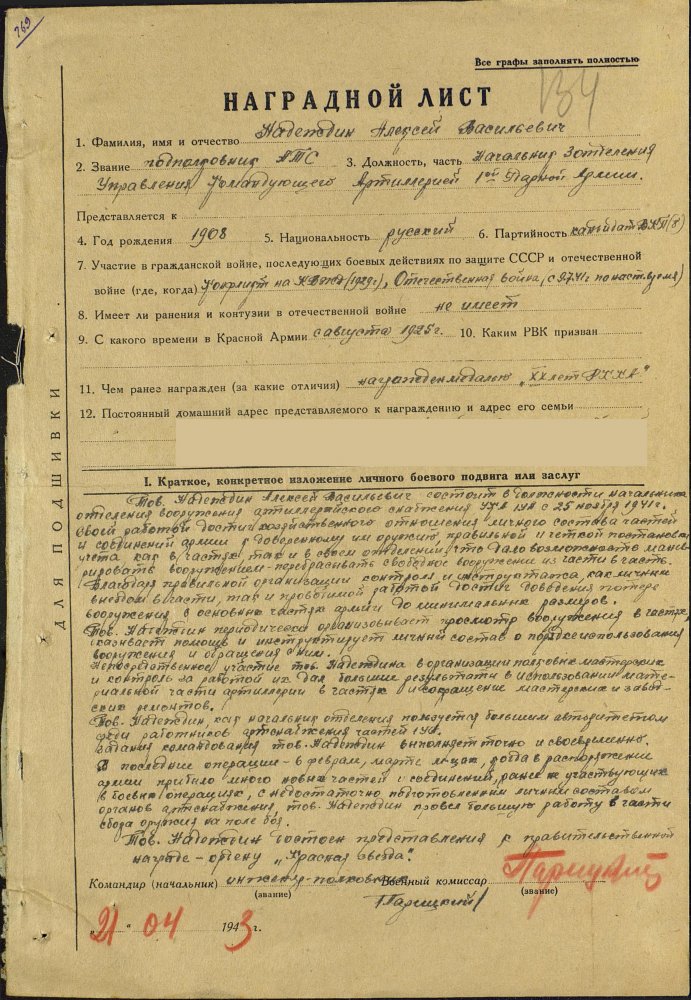 769
Все графы заполнять полностью
134
НАГРАДНОЙ ЛИСТ
1. Фамилия, имя и отчество Надеждин Алексей Васильевич
2. Звание подполковник АТС 3. Должность, часть Начальник 3 отделения
Управления Командующего Артиллерией 1ой Ударной Армии.
Представляется к
4. Год рождения 1908 5. Национальность русский 6. Партийность кандидат ВКП(б)
7. Участие в гражданской войне, последующих боевых действиях по защите СССР и отечественной
войне (где, когда) Конфликт на КВЖД (1929г), Отечественная война, с 9.7.41г по наст. время)
8. Имеет ли ранения и контузии в отечественной войне не имеет
9. С какого времени в Красной Армии с августа 1925г. 10. Каким РВК призван
11. Чем ранее награжден (за какие отличия) награжден медалью „XX лет РККА"
12. Постоянный домашний адрес представляемого к награждению и адрес его семьи
ДЛЯ ПОДШИВКИ
I. Краткое, конкретное изложение личного боевого подвига или заслуг
Тов. Надеждин Алексей Васильевич состоит в должности начальника
отделения вооружения артиллерийского снабжения УКА 1УА с 25 ноября 1941г.
Своей работой достиг хозяйственного отношения личного состава частей
и соединений армии к доверенному им оружию, правильной и четкой постановки
учета как в частях, так и в своем отделении, что дало возможность манев-
рировать вооружением - перебрасывать свободное вооружение из части в часть.
Благодаря правильной организации контроля и инструктажа, как личным
выездом в части, так и проводимой работой достиг сведения потерь
вооружения в основных частях армии до минимальных размеров.
Тов. Надеждин периодически организовывает просмотр вооружения в частях,
оказывает помощь и инструктирует личный состав о порядке использования
вооружения и обращения с ним.
Непосредственное участие тов. Надеждина в организации полковых мастерских
и контроль за работой их дал большие результаты в использовании мате-
риальной части артиллерии в частях и сокращение мастерских и завод-
ских ремонтов.
Тов. Надеждин, как начальник отделения пользуется большим авторитетом
среди работников артснабжения частей 1УА.
Задания командования тов. Надеждин выполняет точно и своевременно.
В последние операции - в феврале, марте м-цах, когда в распоряжение
армии прибыло много новых частей и соединений, ранее не участвующих
в боевых операциях, с недостаточно подготовленным личным составом
органов артснабжения, тов. Надеждин провел большую работу в части
сбора оружия на поле боя.
Тов. Надеждин достоин представления к правительственной
награде - ордену „Красная звезда".
Командир (начальник) инженер-полковник Военный комиссар Парицкий
(звание) (звание)
Парицкий
„21" 04 1943 г.